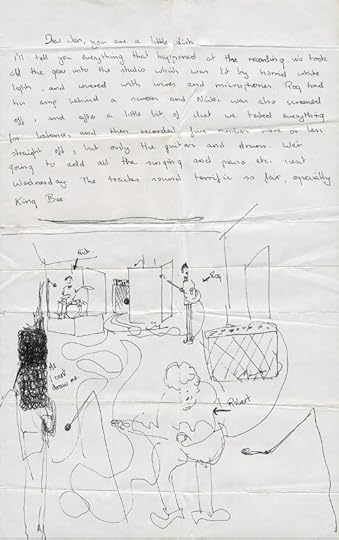 Dear Jen, you are a little dish
I'll tell you everything that happened at the recording. We took
all the gear into the studio which was lit by horrid white
lights, and covered with wires and microphones. Rog had
his amp behind a screen and Nicke was also screened
off, and after a little bit of what we tested everything
for balance, and then recorded five numbers more or less
straight off; but only the guitars and drums. We're
going to add all the singing and piano etc. next
Wednesday. The tracks sound terrific so far, especially
King Bee
Nick
Rog
Me
I can't
draw me
Robert